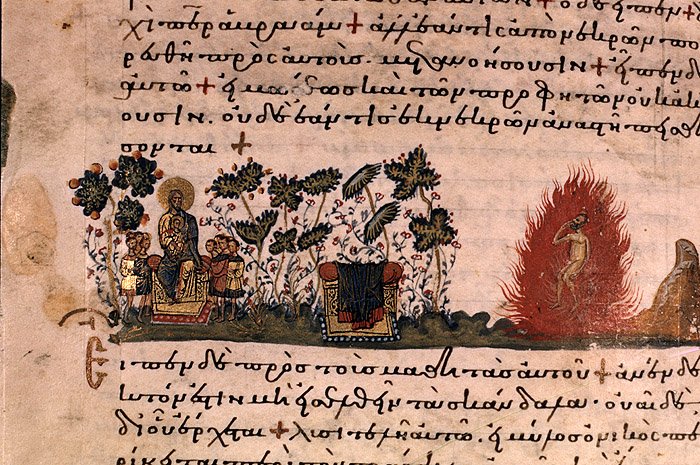 ὁ δὲ εἶπεν +
χὶ περ ἀβραάμ + ἀλλ' ἐάν τις ἀπὸ νεκρῶν πο
ρευθῆ πρὸς αὐτοὺς. μετανοήσουσιν + εἶπεν δὲ
αὐτῶ + εἰ μωσέως καὶ τῶν προφητῶν οὐκ ἀκού
ουσιν. οὐδὲ ἐάν τις ἐκ νεκρῶν ἀναστῆ πεισθή
σονται +
ἶπεν δὲ πρὸς τοὺς μαθητὰς αὐτοῦ + ἀνένδε
κτόν ἐστιν μὴ ἐλθεῖν τὰ σκάνδαλα. οὐαὶ δὲ
δι' οὗ ἔρχεται + λυσιτελεῖ αὐτῶ. εἰ μύλος ὀνικὸς πε
ρίκειται περὶ τὸν